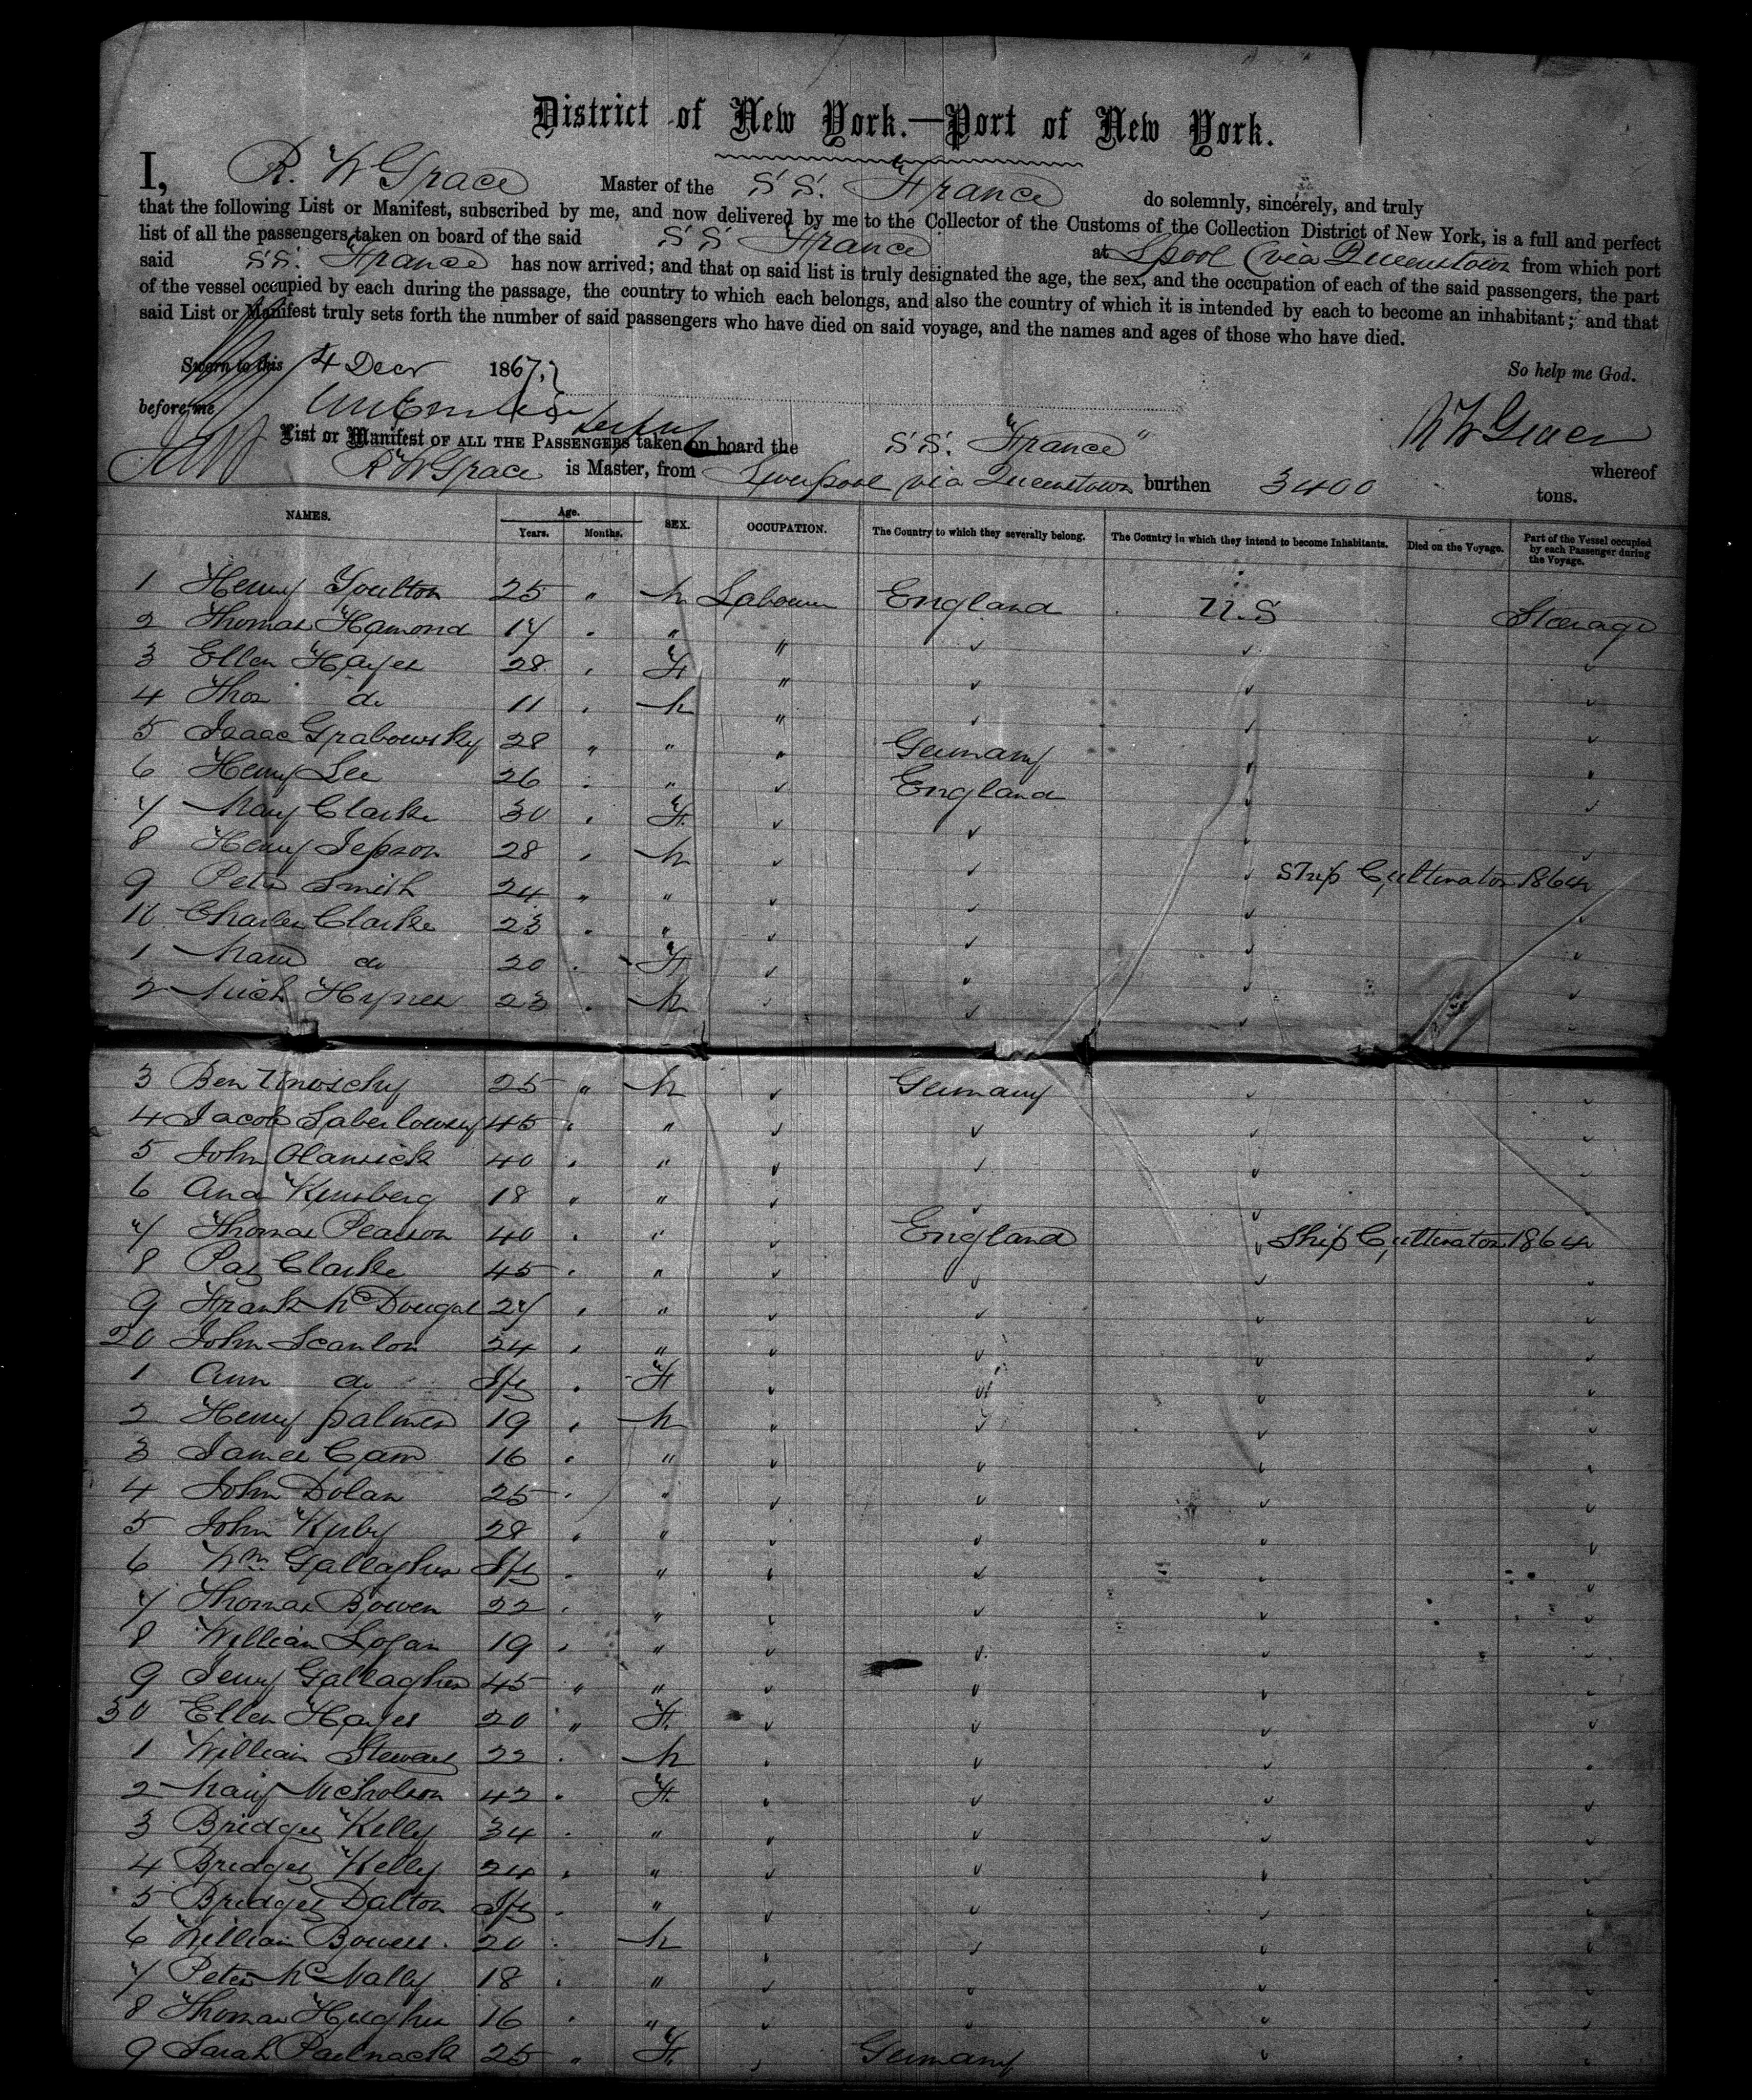 District of New York.—Port of New York.
I, R. W Grace Master of the S.S. France do solemnly, sincerely, and truly
that the following List or Manifest, subscribed by me, and now delivered by me to the Collector of the Customs of the Collection District of New York, is a full and perfect
list of all the passengers taken on board of the said S S France at Lpool (via Queenstown from which port
said S.S. France has now arrived; and that on said list is truly designated the age, the sex, and the occupation of each of the said passengers, the part
of the vessel occupied by each during the passage, the country to which each belongs, and also the country of which it is intended by each to become an inhabitant; and that
said List or Manifest truly sets forth the number of said passengers who have died on said voyage, and the names and ages of those who have died.
Sworn to this 4 Decr 1867, So help me God.
before me
List or Manifest OF ALL THE PASSENGERS taken on board the S.S. "France" whereof
R W Grace is Master, from Liverpool via Queenstown burthen 3400 tons.
NAMES. Age. Years. Months. SEX. OCCUPATION. The Country to which they severally belong. The Country in which they intend to become Inhabitants. Died on the Voyage. Part of the Vessel occupied by each Passenger during the Voyage.
1 Henry Goulton 25 " M Labourer England U.S Steerage
2 Thomas Hamond 17 " "
3 Ellen Hayes 28 F "
4 Thos do 11 M "
5 Isaac Grabowsky 28 " " " Germany
6 Henry Lee 26 " England
7 Mary Clarke 30 F
8 Henry Jepson 28 M
9 Peter Smith 24 " " Ship Cultivator 1864
10 Charles Clarke 23 "
1 Mary do 20 F
2 Mich Hynes 23 M
3 Ben 25 " M Germany
4 Jacob 45 "
5 John 40 "
6 18 " "
7 Thomas Pearson 40 " England Ship Cultivator 1864
8 Pat Clarke 45 "
9 Frank McDougal 27 "
20 John Scanlon 24 "
1 Ann do Inft F
2 Henry Palmer 19 M
3 James Cam 16 "
4 John Dolan 25 "
5 John Kirby 28 "
6 Wm Gallagher Inft "
7 Thomas Bowen 22 "
8 William Logan 19 "
9 Jerry Gallagher 45 " "
30 Ellen Hayes 20 " F
1 William Stewart 22 M
2 Mary Nicholson 42 F
3 Bridget Kelly 34 "
4 Bridget Kelly 24 "
5 Bridget Dalton Inft "
6 William Bowers 20 M
7 Peter McNally 18 "
8 Thomas Hughes 16 "
9 Sarah 25 " F Germany